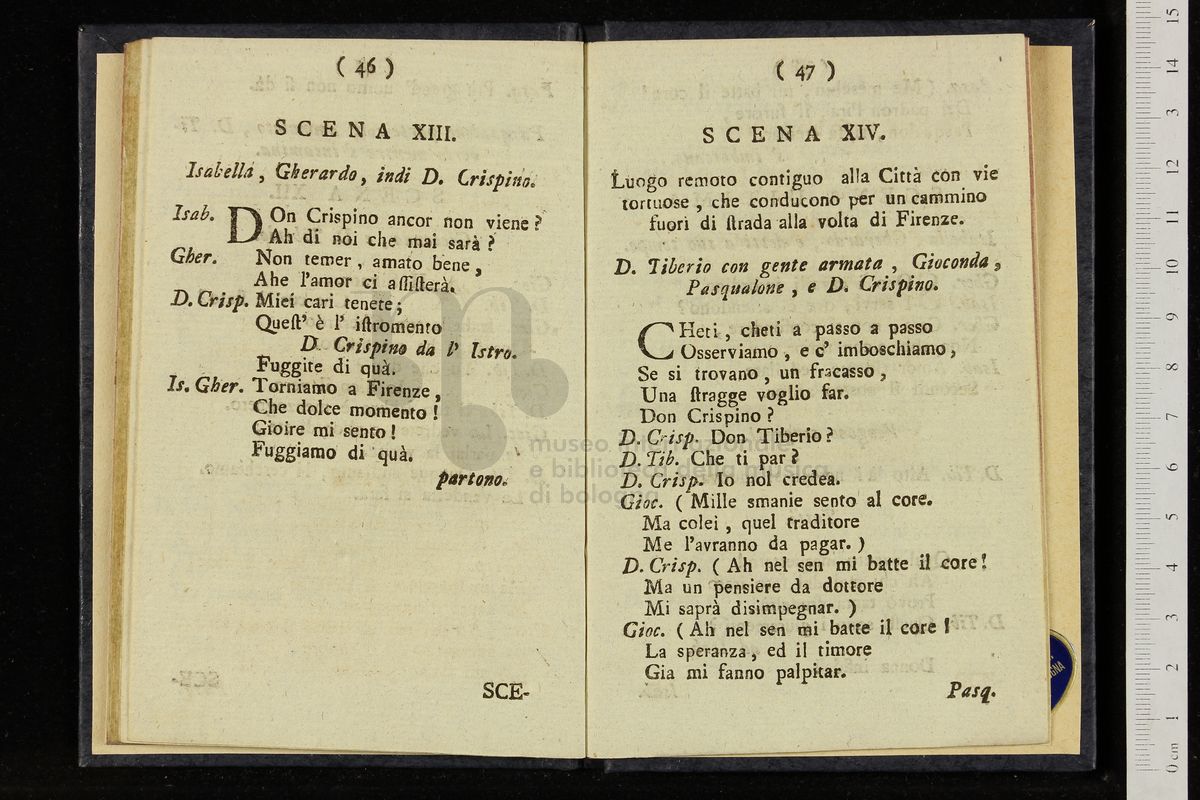 ( 46 )
SCENA XIII.
Isabella, Gherardo, indi D. Crispino.
Isab. DOn Crispino ancor non viene?
Ah di noi che mai sarà?
Gher. Non temer, amato bene,
Ahe l'amor ci assisterà.
D. Crisp. Miei cari tenete;
Quest' è l' istromento
D. Crispino da l' Istro.
Fuggite di quà.
Is. Gher. Torniamo a Firenze,
Che dolce momento!
Gioire mi sento!
Fuggiamo di quà.
partono.
SCE-
( 47 )
SCENA XIV.
Luogo remoto contiguo alla Città con vie
tortuose, che conducono per un cammino
fuori di strada alla volta di Firenze.
D. Tiberio con gente armata, Gioconda,
Pasqualone, e D. Crispino.
CHeti, cheti a passo a passo
Osserviamo, e c' imboschiamo,
Se si trovano, un fracasso,
Una stragge voglio far.
Don Crispino?
D. Crisp. Don Tiberio?
D. Tib. Che ti par?
D. Crisp. Io nol credea.
Gioc. (Mille smanie sento al core.
Ma colei, quel traditore
Me l'avranno da pagar.)
D. Crisp. (Ah nel sen mi batte il core!
Ma un pensiere da dottore
Mi saprà disimpegnar.)
Gioc. (Ah nel sen mi batte il core!
La speranza, ed il timore
Gia mi fanno palpitar.
Pasq.
museo internazionale
e biblioteca della musica
di bologna
0 cm 1 2 3 4 5 6 7 8 9 10 11 12 13 14 15